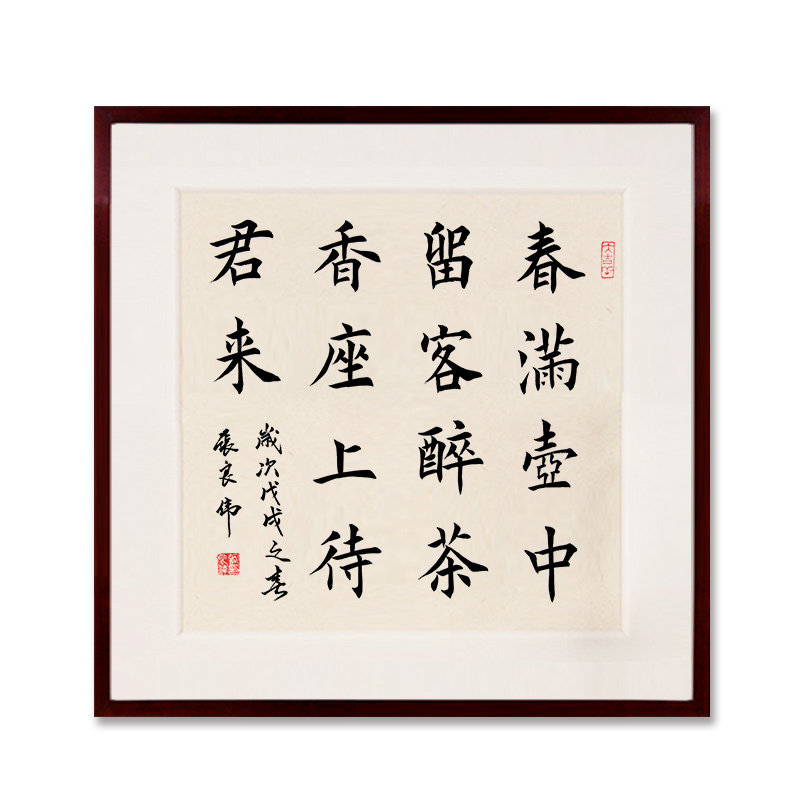 春滿壺中
留客醉茶
香座上待
君来
歲次戊戌之春
張良伟